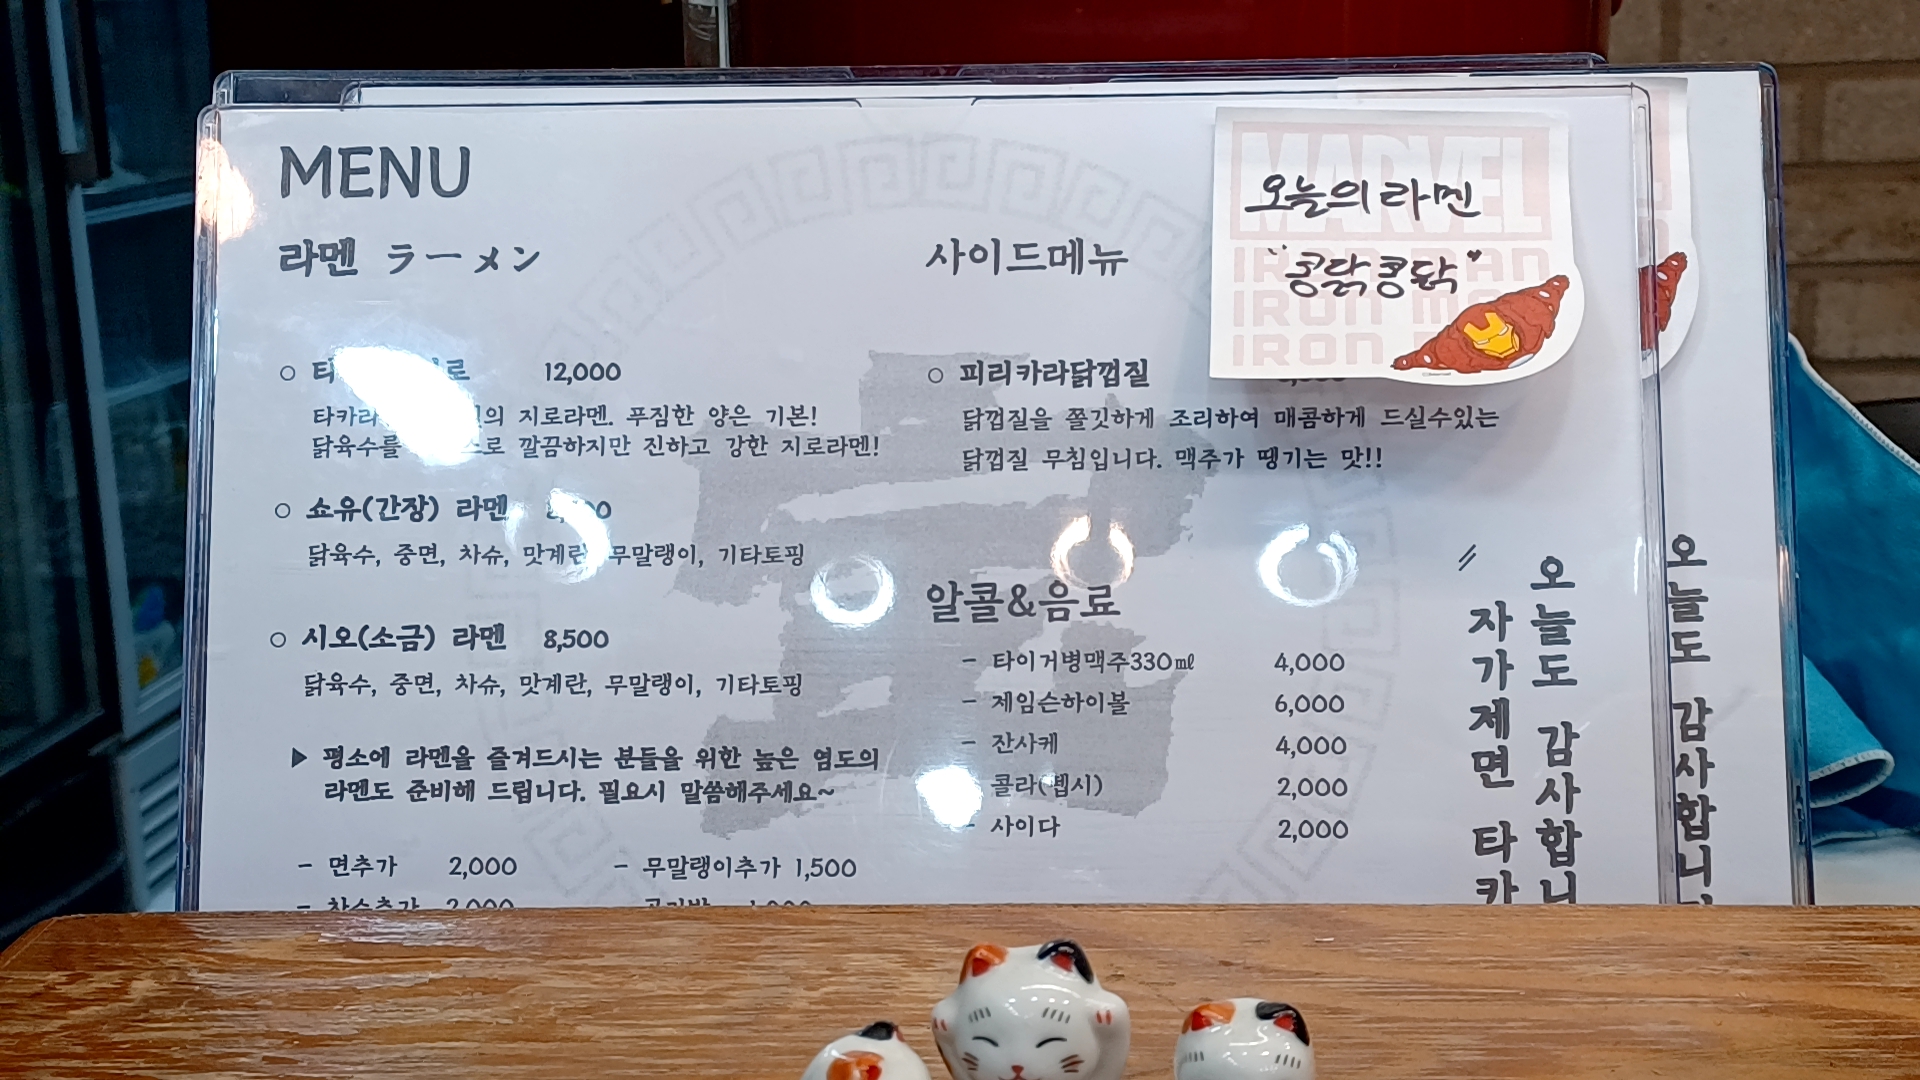 MENU
라멘 ラーメン
12,000
지로라멘. 푸짐한 양은 기본!
닭육수를 깔끔하지만 진하고 강한 지로라멘!
쇼유(간장) 라멘
닭육수, 중면, 차슈, 맛계란, 무말랭이, 기타토핑
시오(소금) 라멘 8,500
닭육수, 중면, 차슈, 맛계란, 무말랭이, 기타토핑
▶ 평소에 라멘을 즐겨드시는 분들을 위한 높은 염도의
라멘도 준비해 드립니다. 필요시 말씀해주세요~
- 면추가 2,000 - 무말랭이추가 1,500
사이드메뉴
피리카라닭껍질
닭껍질을 쫄깃하게 조리하여 매콤하게 드실수있는
닭껍질 무침입니다. 맥주가 땡기는 맛!!
알콜&음료
- 타이거병맥주330㎖ 4,000
- 제임슨하이볼 6,000
- 잔사케 4,000
콜라(펩시) 2,000
- 사이다 2,000
MARVEL
오늘의 라멘
"콩닭콩닭"
IRON MAN
IRON
IRON
오늘도 감사합니
자가제면 타카
오늘도 감사합니